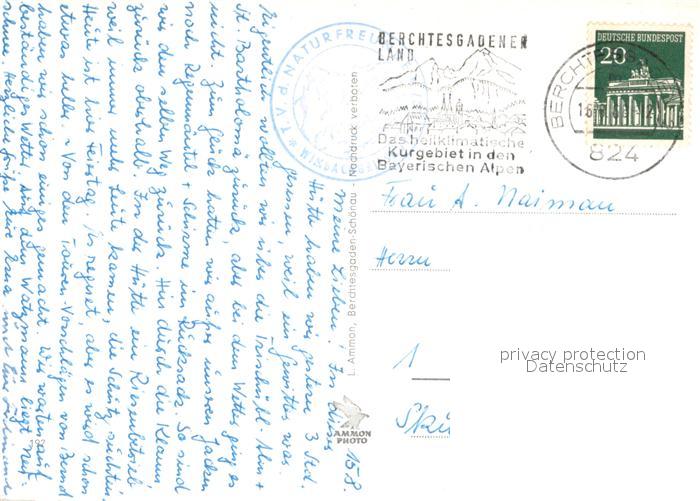 15.8.
Meine Lieben! In dieser
Hütte haben wir gestern 3 Std.
gesessen, weil ein Gewitter war.
Eigentlich wollten wir über die Trischübl-Alm +
St. Bartholomä zurück, aber bei dem Wetter ging es
nicht. Zum Glück hatten wir außer unseren Jacken
noch Regenmäntel + Schirme im Rucksack. So sind
wir den selben Weg zurück. Hin durch die Klamm
zurück oberhalb. In der Hütte ein Riesenbetrieb
weil immer mehr Leute kamen, die Schutz suchten.
Heute ist hier Feiertag. Es regnet, aber es wird schon
etwas heller. Von den Touren-Vorschlägen von Bernd
haben wir schon einiges gemacht. Wir warten auf
beständiges Wetter. Auf dem Watzmann liegt Neu-
schnee. Herzliche Grüße Eure und
T.V. d. NATURFREU
WIMBACH
L. Ammon, Berchtesgaden-Schönau - Nachdruck verboten
AMMON
PHOTO
192
BERCHTESGADENER
LAND
Das heilklimatische
Kurgebiet in den
Bayerischen Alpen
DEUTSCHE BUNDESPOST
20
BERCHTES
824
Frau A. Naiman
Herrn
1
privacy protection
Datenschutz